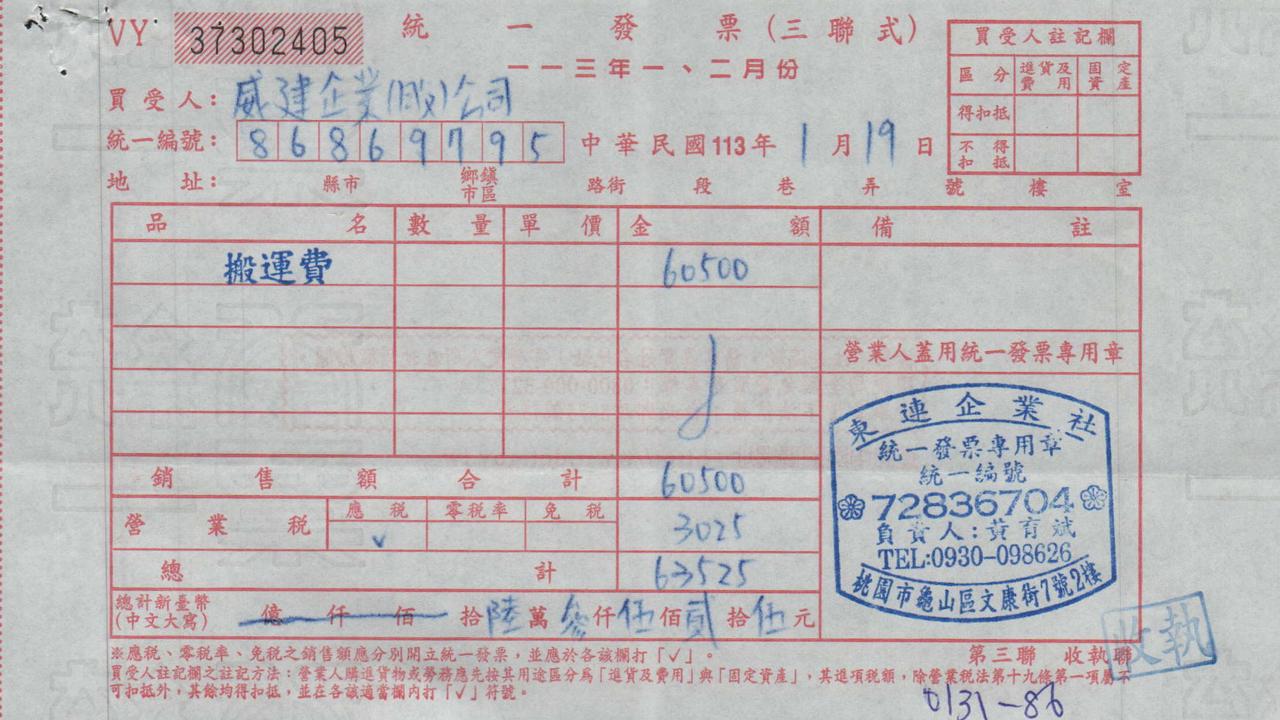 VY 37302405 統一發票(三聯式)
一一三年一、二月份
買受人註記欄
區分 進貨及費用 固定資產
得扣抵
不得扣抵
買受人: 威建企業(股)公司
統一編號: 86869795 中華民國113年1月19日
地址: 縣市 鄉鎮市區 路街 段 巷 弄 號 樓 室
品名 數量 單價 金額 備註
搬運費 60500
營業人蓋用統一發票專用章
銷售額合計 60500
營業稅 應稅 零稅率 免稅 3025
✓
總計 63525
總計新臺幣(中文大寫) 億仟佰拾陸萬參仟伍佰貳拾伍元
東連企業社
統一發票專用章
統一編號
72836704
負責人:黃育斌
TEL:0930-098626
桃園市龜山區文康街7號2樓
※應稅、零稅率、免稅之銷售額應分別開立統一發票,並應於各該欄打「✓」。
第三聯 收執聯
收執
買受人註記欄之註記方法:營業人購進貨物或勞務應先按其用途區分為「進貨及費用」與「固定資產」,其進項稅額,除營業稅法第十九條第一項屬不
可扣抵外,其餘均得扣抵,並在各該適當欄內打「✓」符號。
0131-86